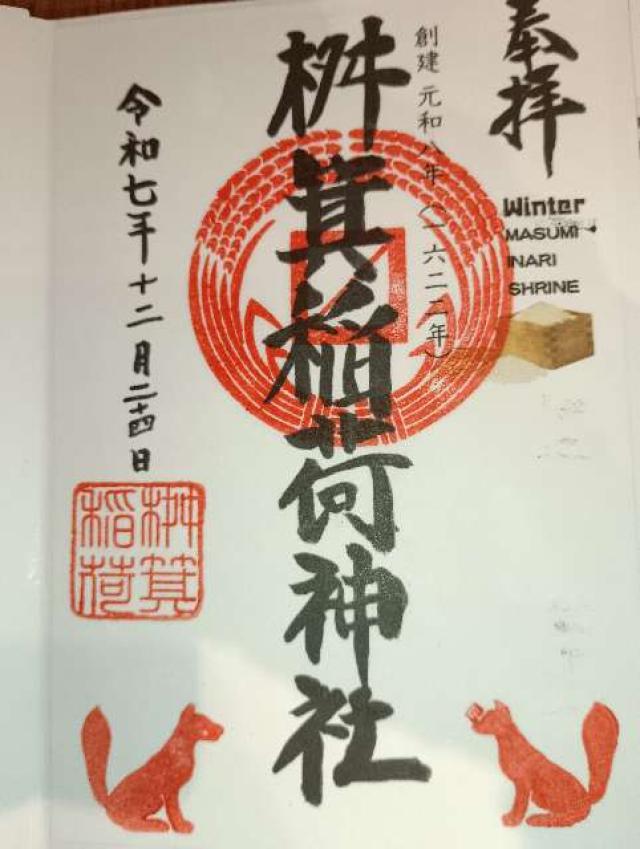 奉拝
Winter
MASUMI
INARI
SHRINE
創建 元和八年(一六二二年)
桝箕稲荷神社
令和七年十二月二十四日
桝箕
稲荷